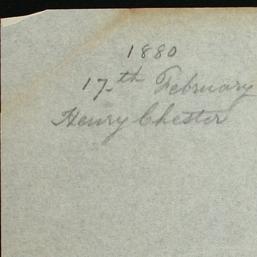 1880
17th February
Henry Chester